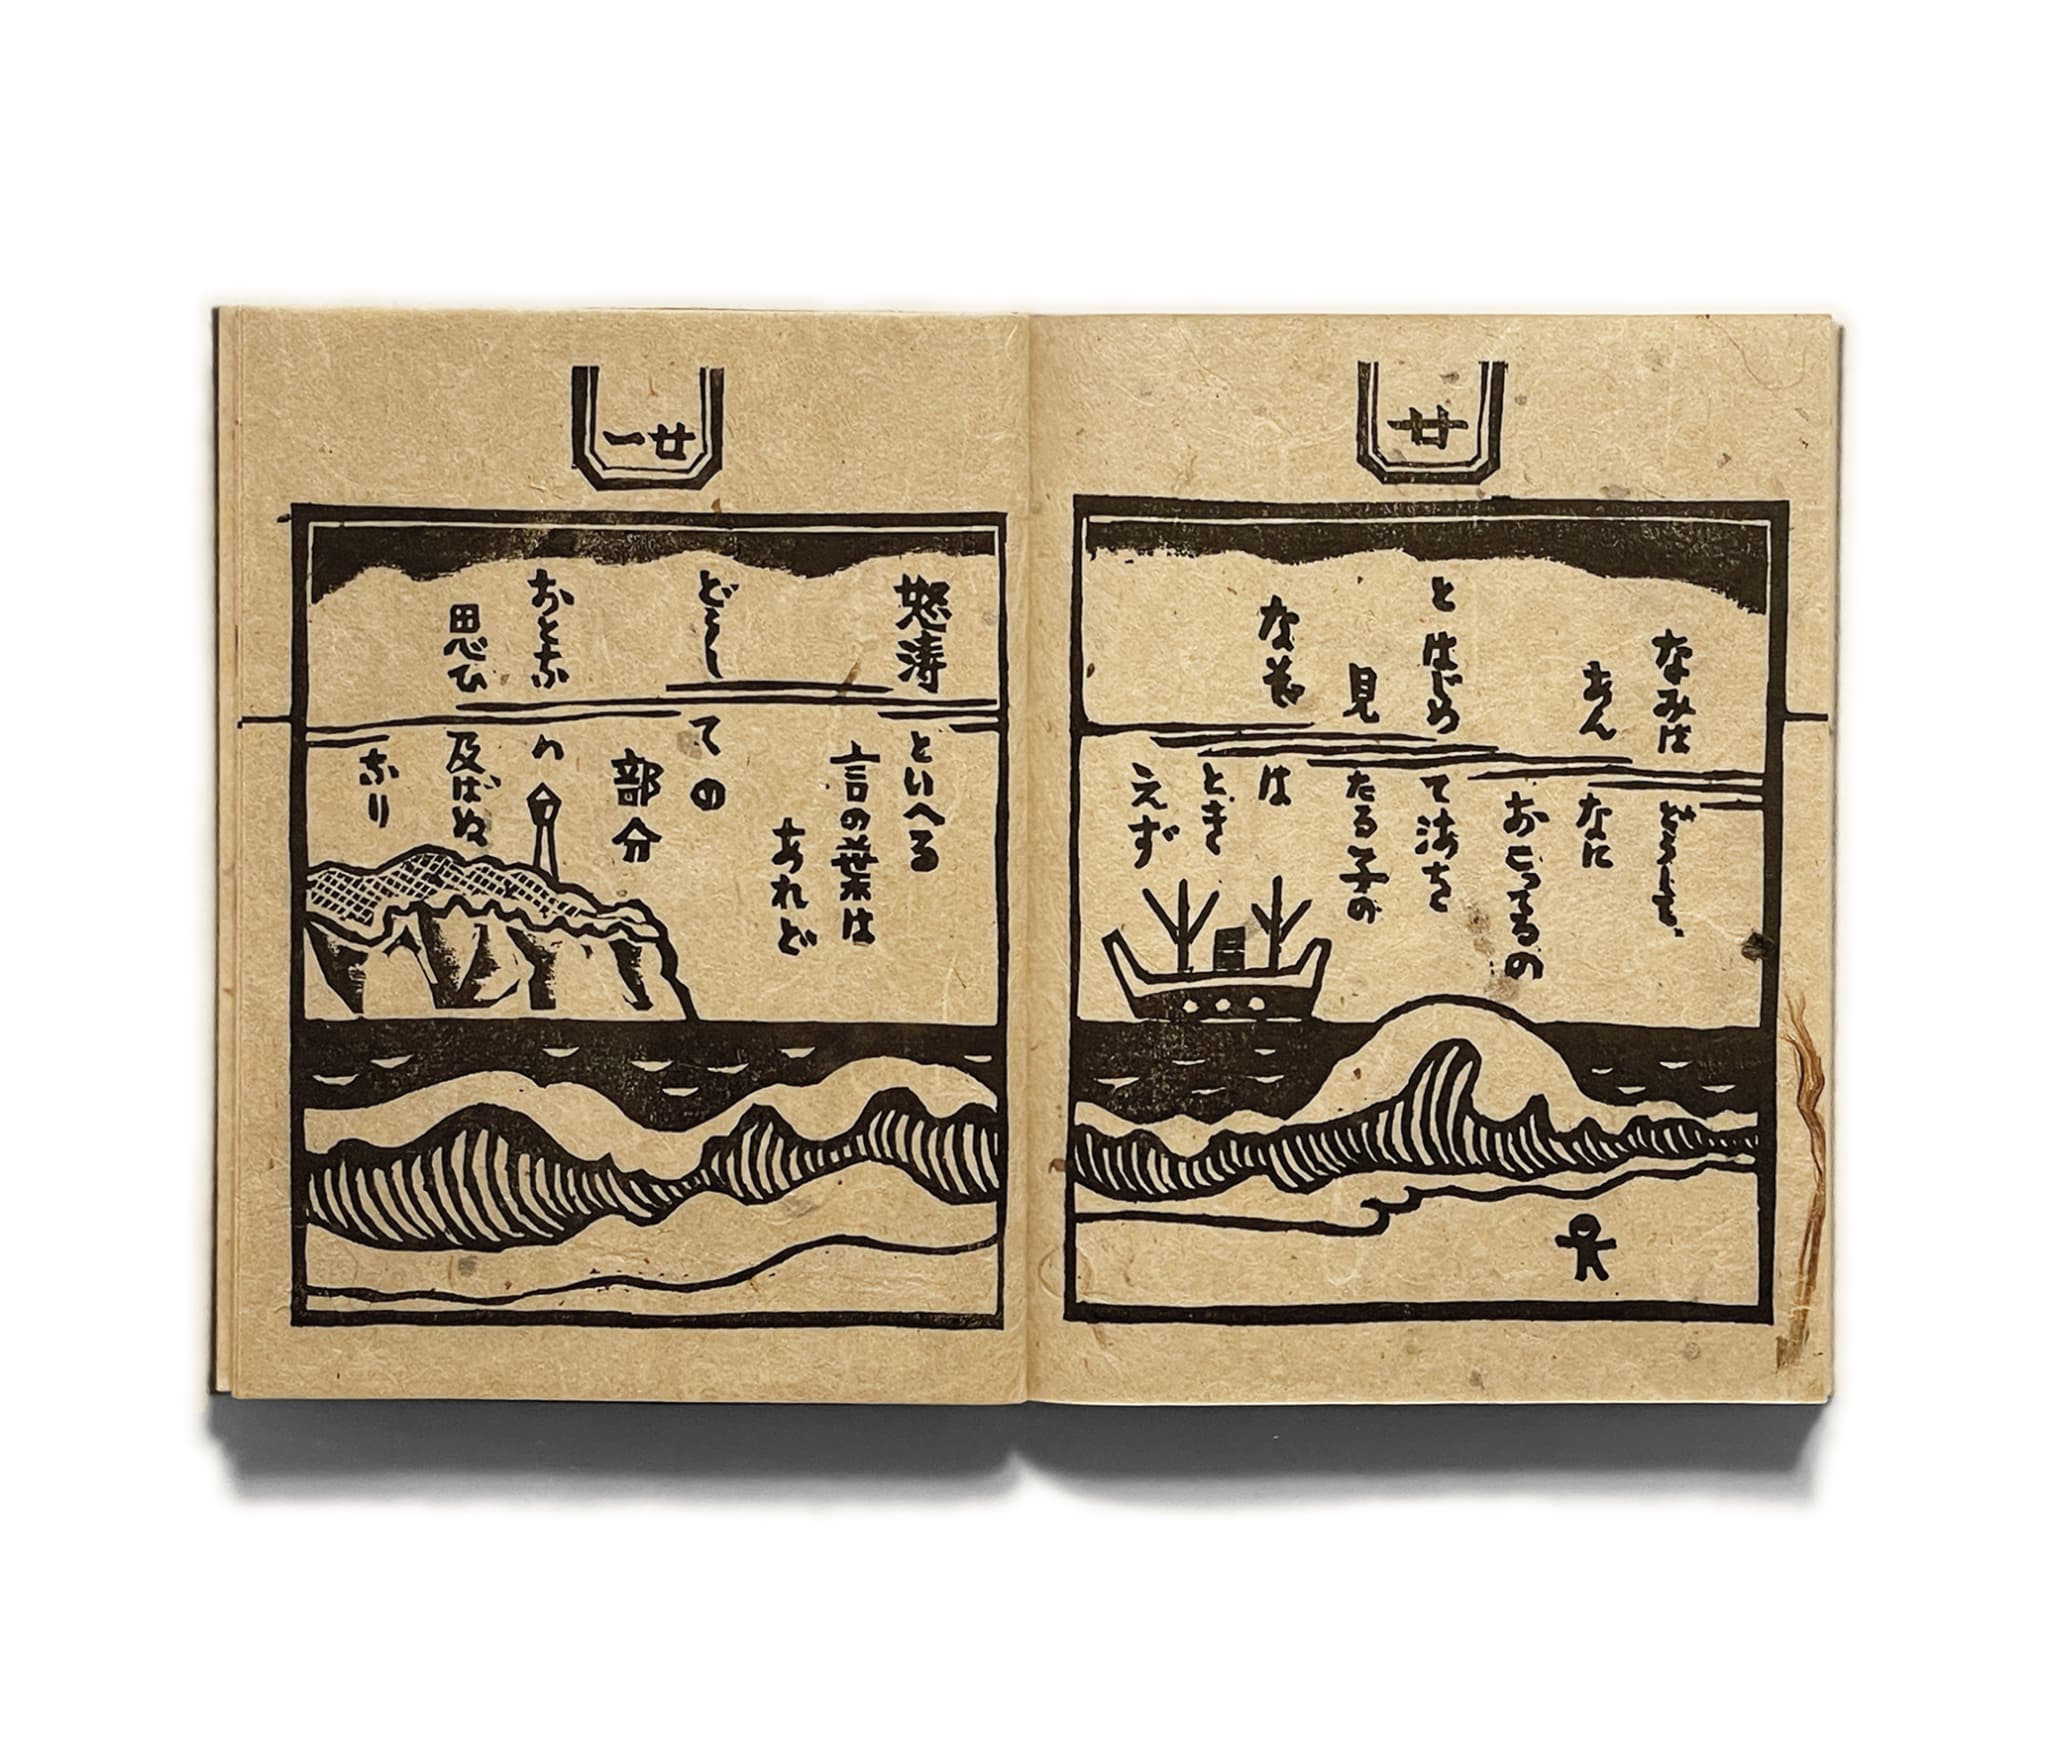 廿
なみは どうして、
あん なに
おこつてるの
と はじめ て海を
見 たる子の
なぞ は
とき
えず
廿一
怒涛 といへる
言の葉は
あれど
どうし ての
部分
おとな ハ
思ひ 及ばぬ
なり